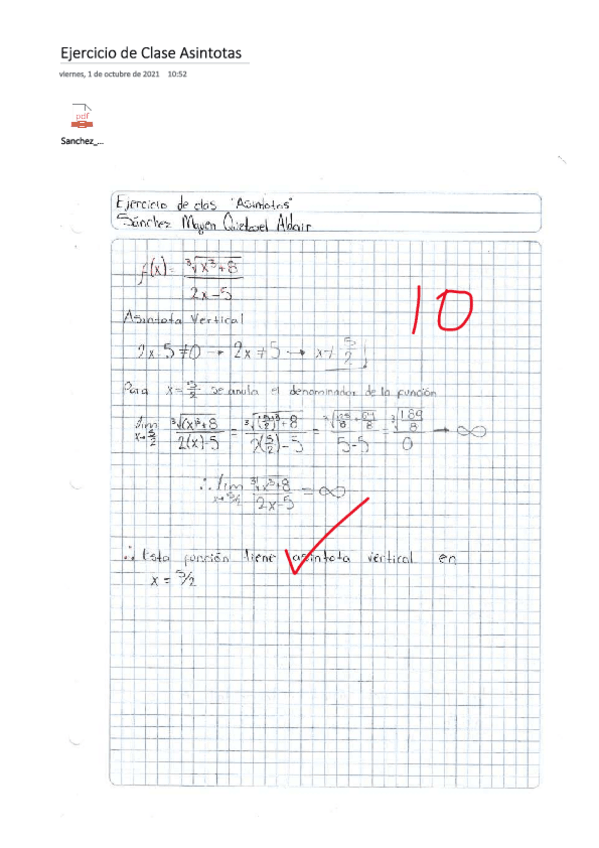 Ejercicio de Clase Asintotas
viernes, 1 de octubre de 2021 10:52
pdf
Sanchez_...
Ejercicio de clas "Asintotas"
Sánchez Mayen Aldair
f(x) = ∛(x³+8) / 2x-5
10
Asintota Vertical
2x-5≠0 → 2x≠5 → x≠ 5/2
Para x= 5/2 se anula el denominador de la función
lim x→5/2 ∛((x)³+8) / 2(x)-5 = ∛((5/2)³+8) / 2(5/2)-5 = ∛(125/8 + 64/8) / 5-5 = ∛(189/8) / 0 → ∞
∴ lim x→5/2 ∛(x³+8) / 2x-5 = ∞
∴ Esta función tiene asintota vertical en
x = 5/2